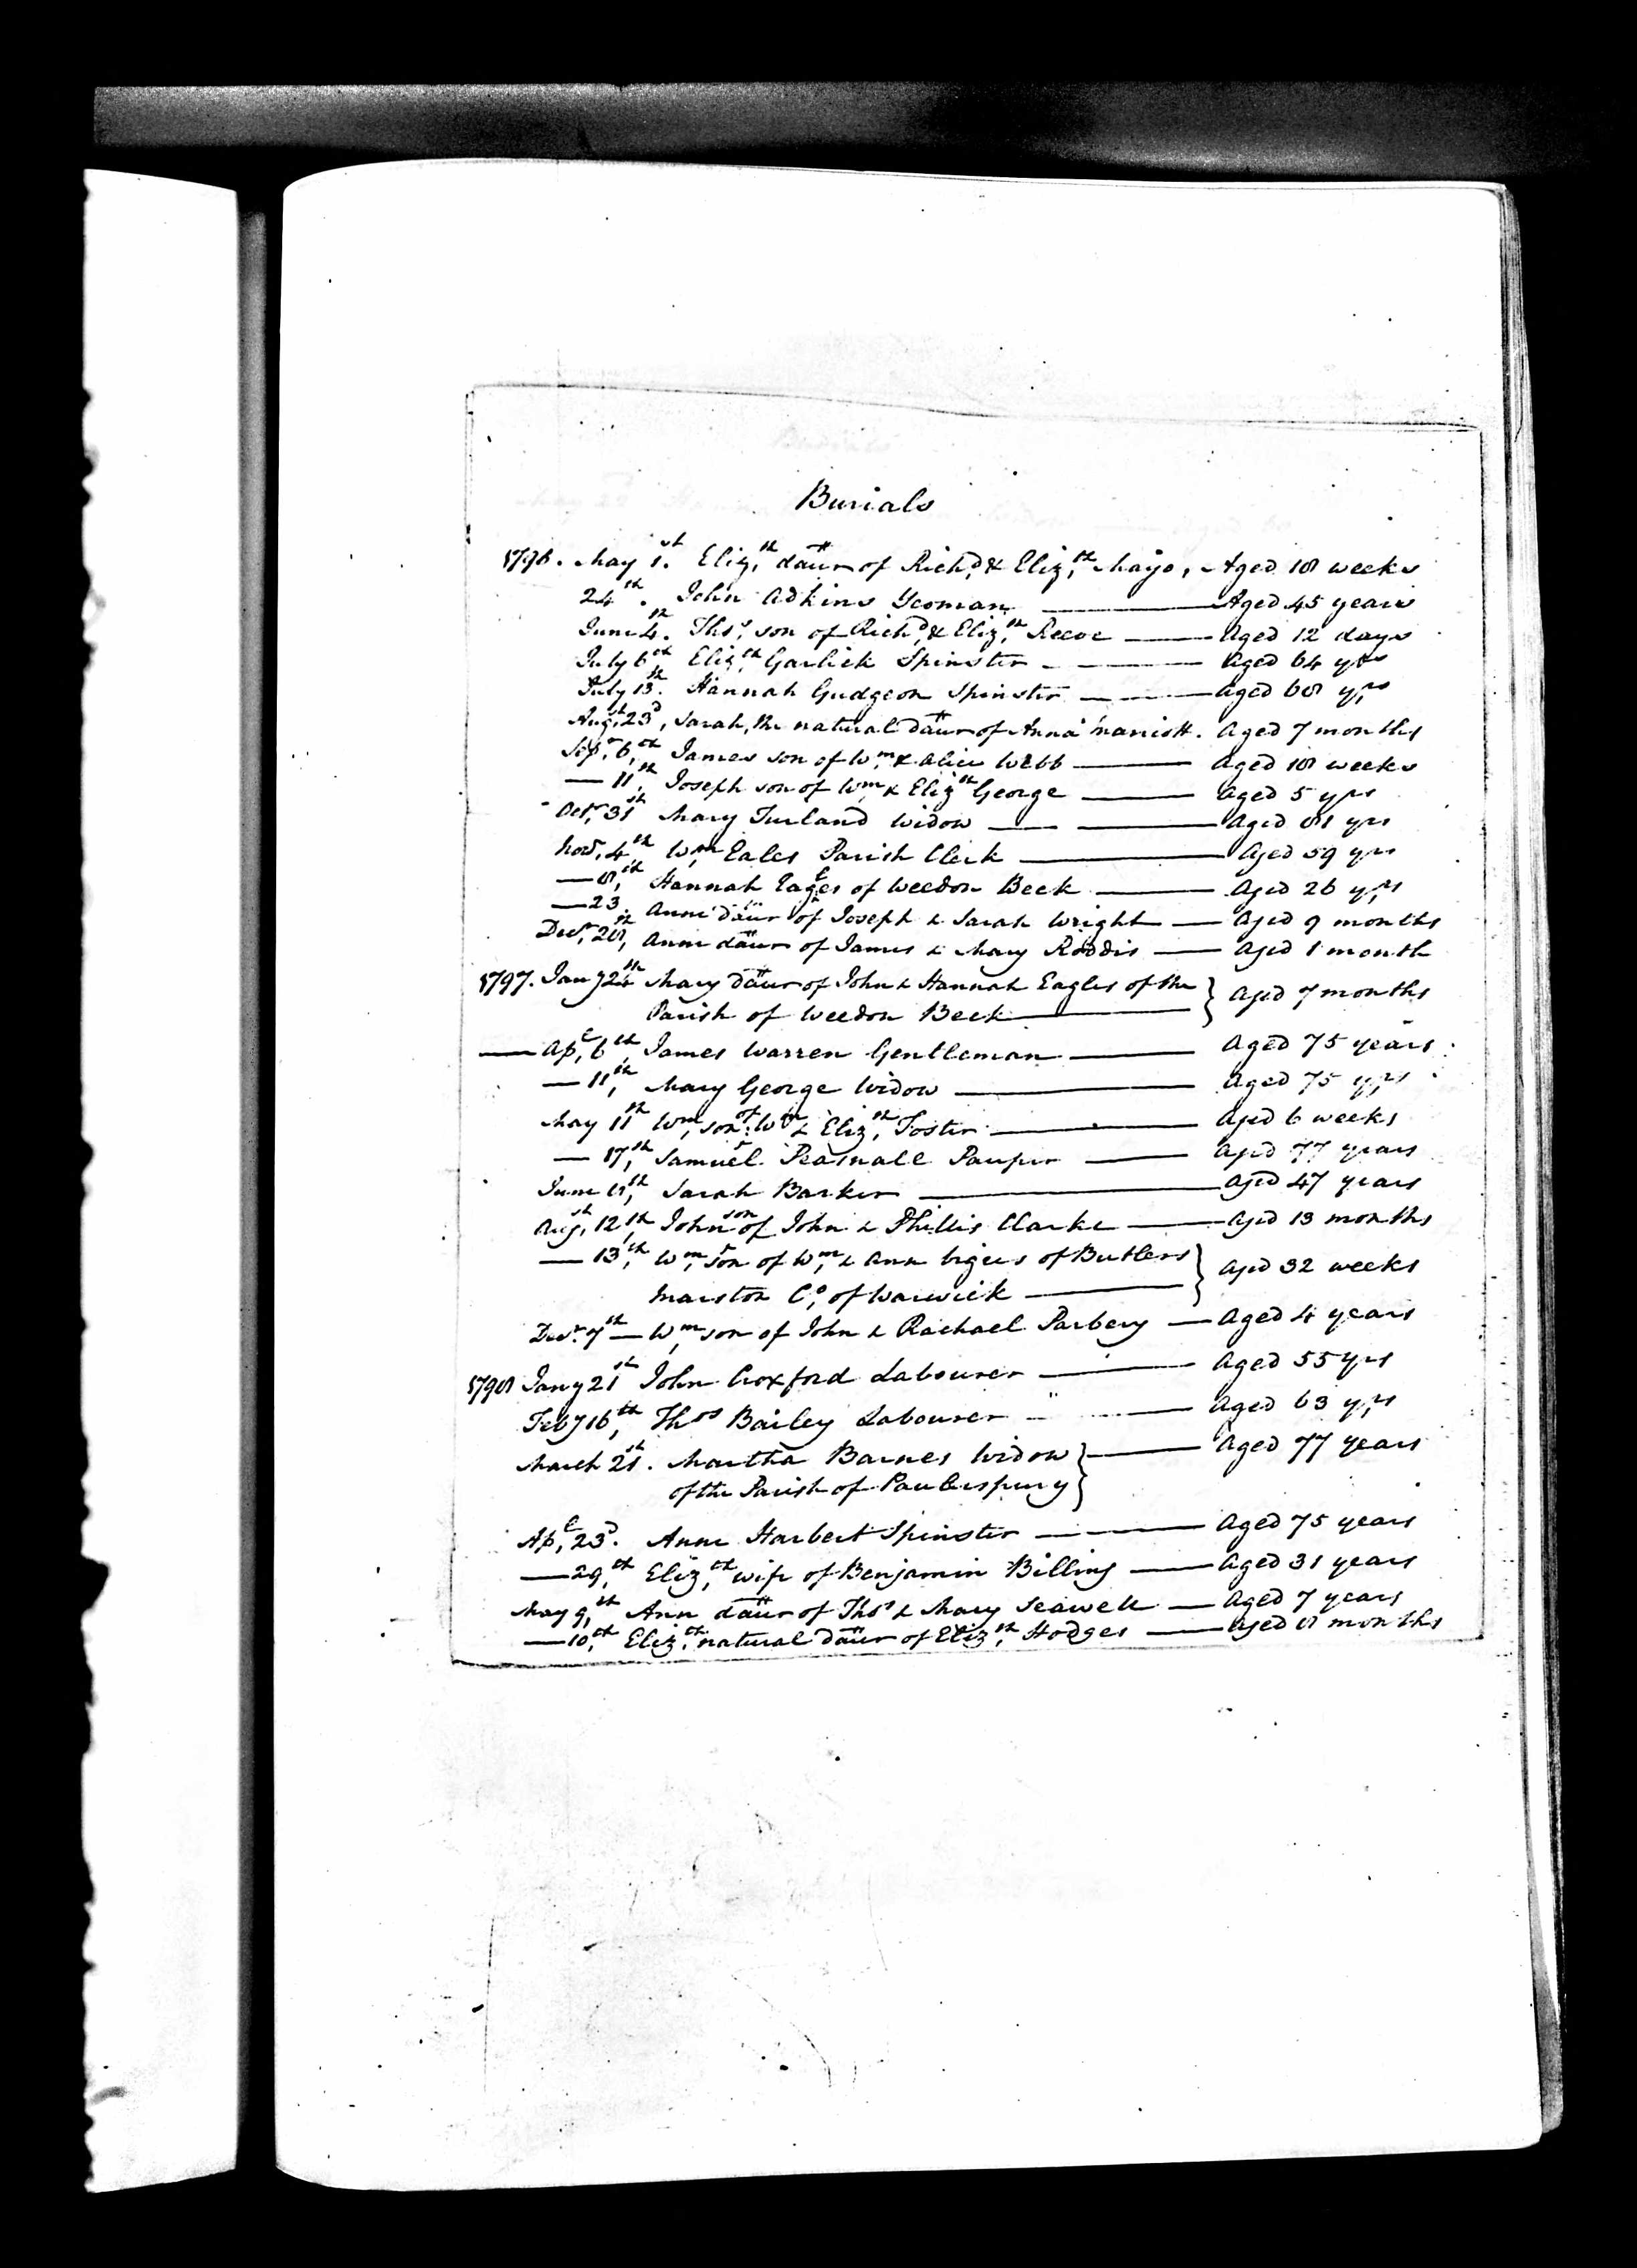 Burials
1796. May 1.st Eliz,th daūr of Rich,d & Eliz,th Mayo, Aged 18 weeks
24th. John Adkins Yeoman Aged 45 years
June 4.th Thos, son of Rich,d & Eliz,th Reeve Aged 12 days
July 6th, Eliz,th Garlick Spinster Aged 64 yrs
July 13.th Hannah Gudgeon Spinster Aged 68 y,rs
Augst, 23d, Sarah, the natural daūr of Anna Aged 7 months
Sepr, 6,th James son of W,m & Alice Webb Aged 18 weeks
— 11,th Joseph son of W,m & Elizth George Aged 5 yrs
Octr, 31st Mary Turland Widow Aged 81 yrs
Novr, 4,th W,m Eales Parish Clerk Aged 59 yrs
— 8,th Hannah Eagles of Weedon Beck Aged 26 y,rs
— 23 Anne daūr of Joseph & Sarah Wright Aged 9 months
Decr, 28,th Anne daūr of James & Mary Roddis Aged 1 month
1797. Jany 24th Mary daūr of John & Hannah Eagles of the } Aged 7 months
Parish of Weedon Beck
— Apl, 6th, James Warren Gentleman Aged 75 years
— 11,th Mary George Widow Aged 75 y,rs
May 11th W,m son of W,m & Eliz,th Foster Aged 6 weeks
— 17,th Samuel Peasnall Pauper Aged 77 years
June 18,th Sarah Barker Aged 47 years
Augst, 12,th John son of John & Phillis Clarke Aged 13 months
— 13,th W,m, son of W,m, & Ann of Butlers } Aged 32 weeks
Marston Co, of Warwick
Decr. 7th — W,m son of John & Rachael Parbery Aged 4 years
1798 Jany 21st John Croxford Labourer Aged 55 yrs
Feby 16,th Thos Bailey Labourer Aged 63 y,rs
March 21st. Martha Barnes Widow } Aged 77 years
of the Parish of Paulerspury
Apl, 23d. Anne Harbert Spinster Aged 75 years
— 29,th Eliz,th wife of Benjamin Billing Aged 31 years
May 9,th Ann daūr of Thos & Mary Seawell Aged 7 years
— 10,th Eliz,th natural daūr of Eliz,th Hodges Aged 8 months